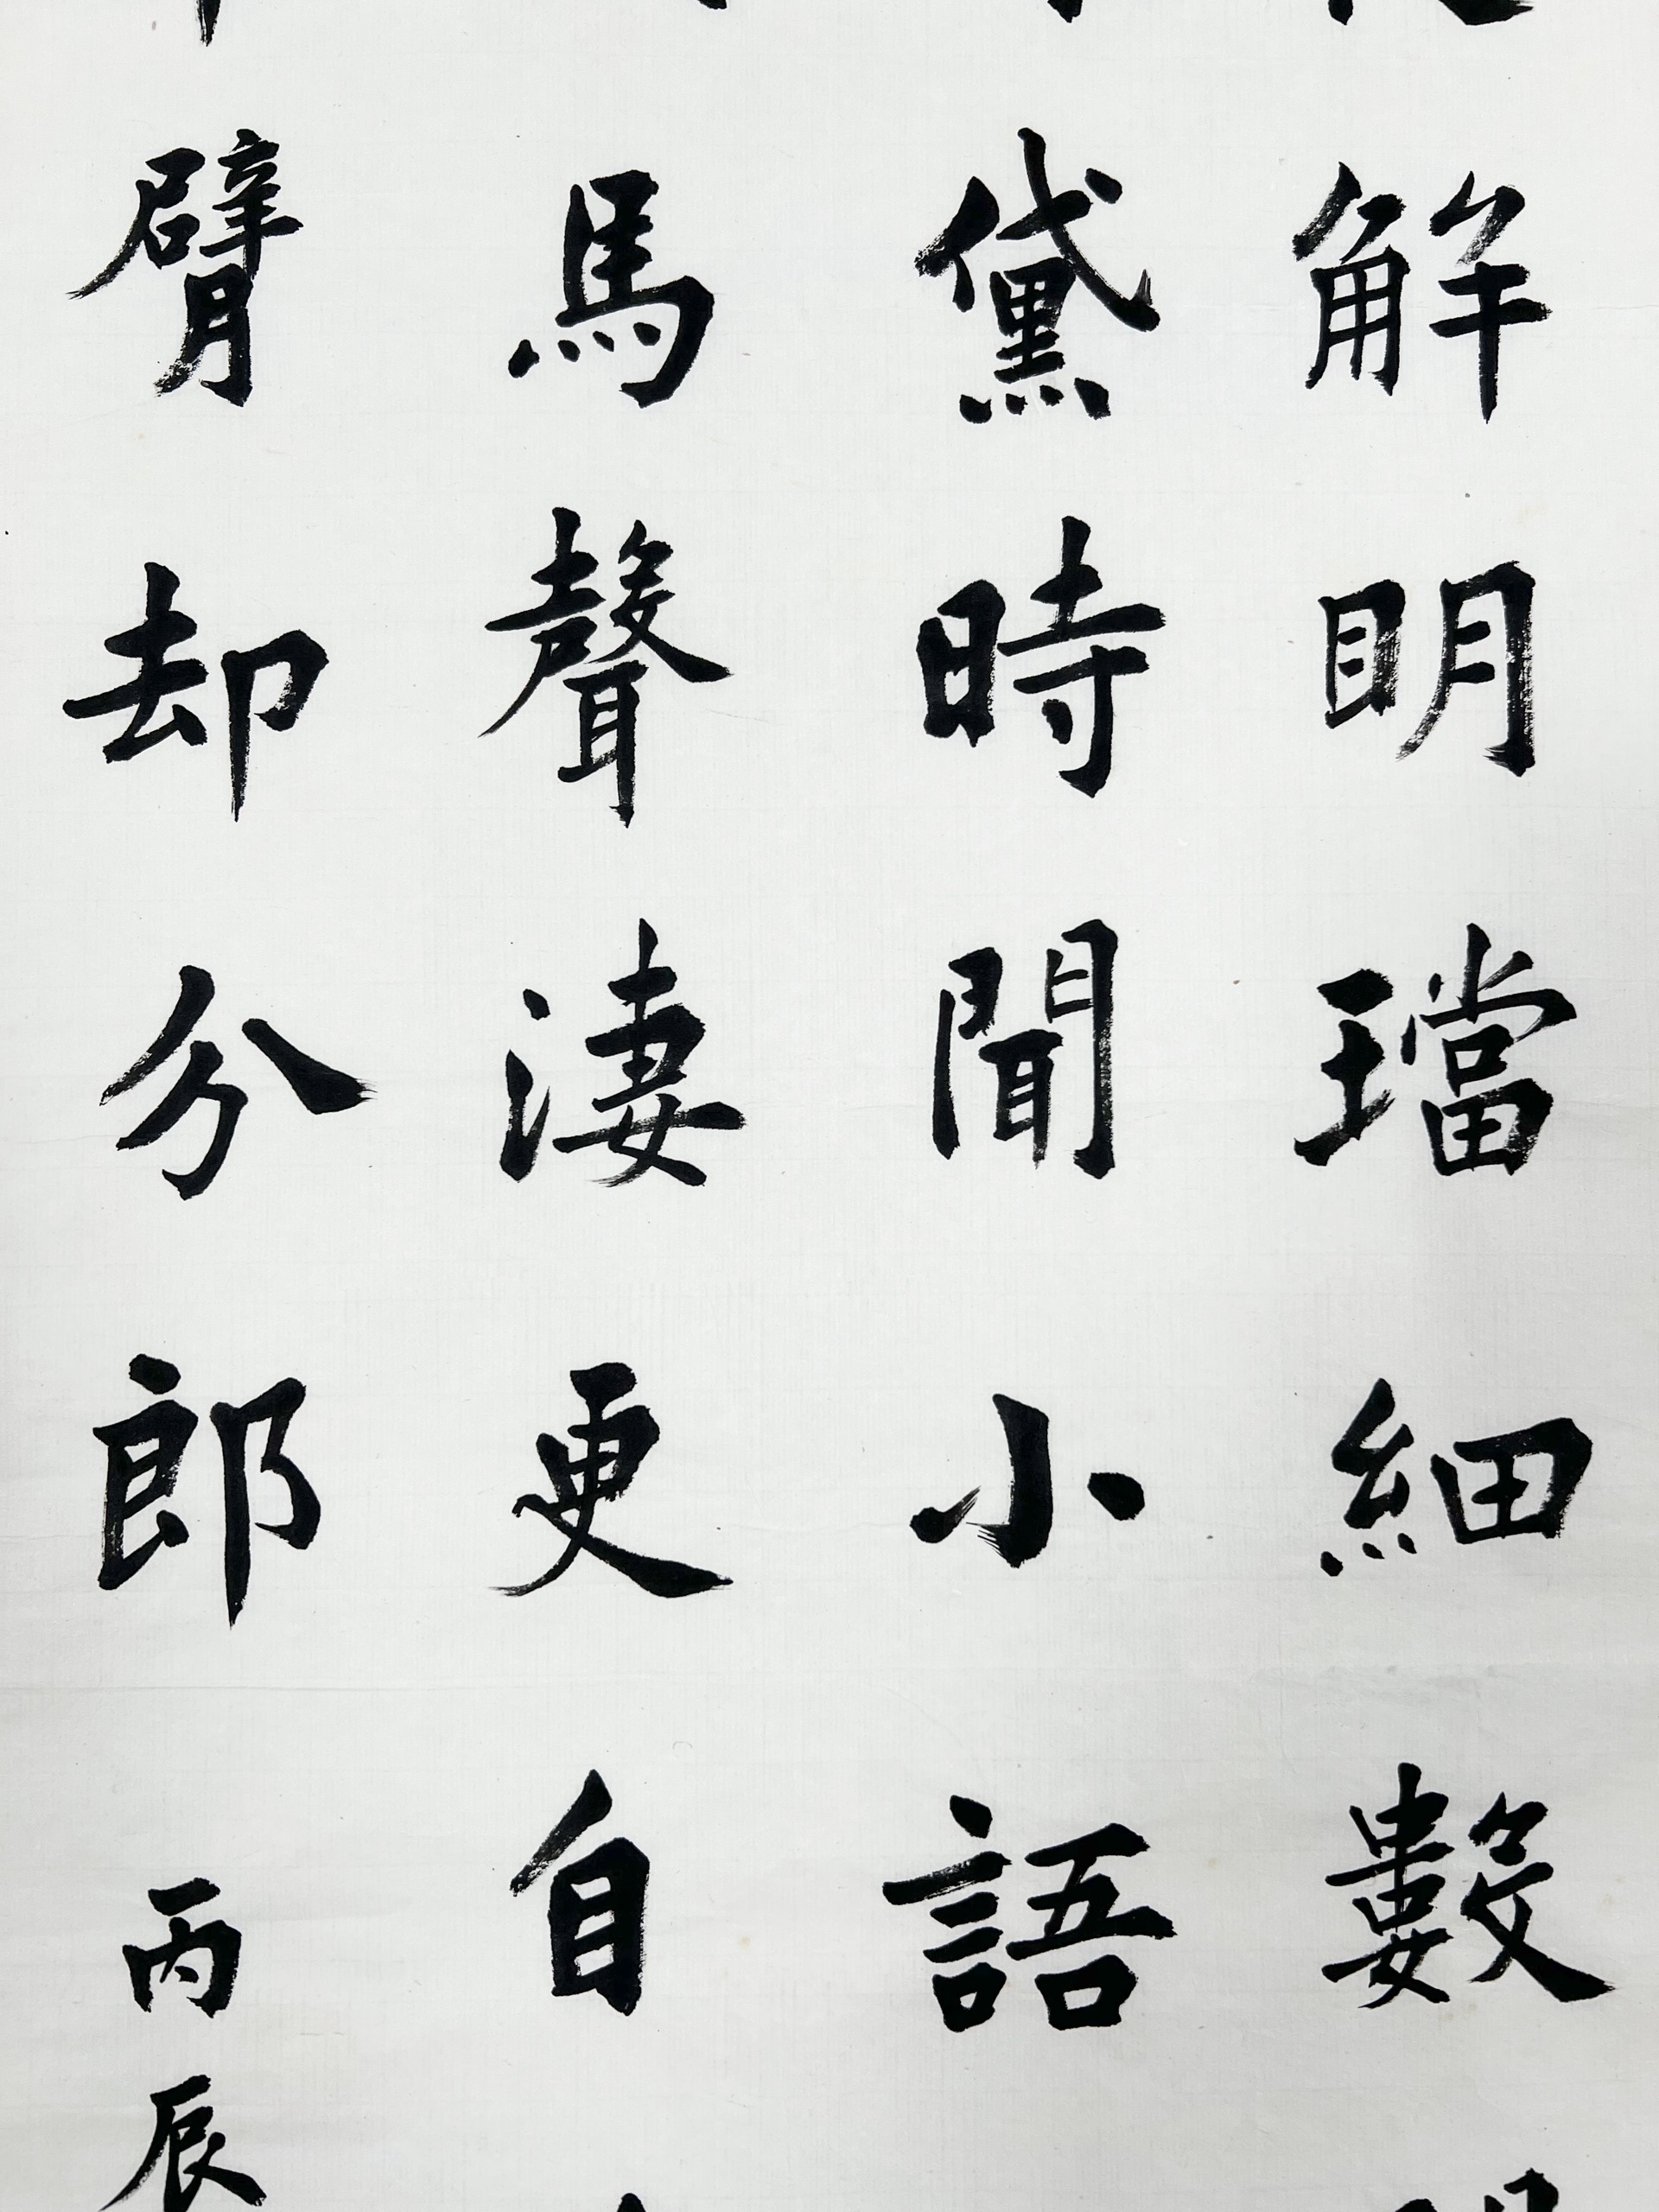 解明璫細數
黛時聞小語
馬聲淒更自
臂却分郎 丙辰